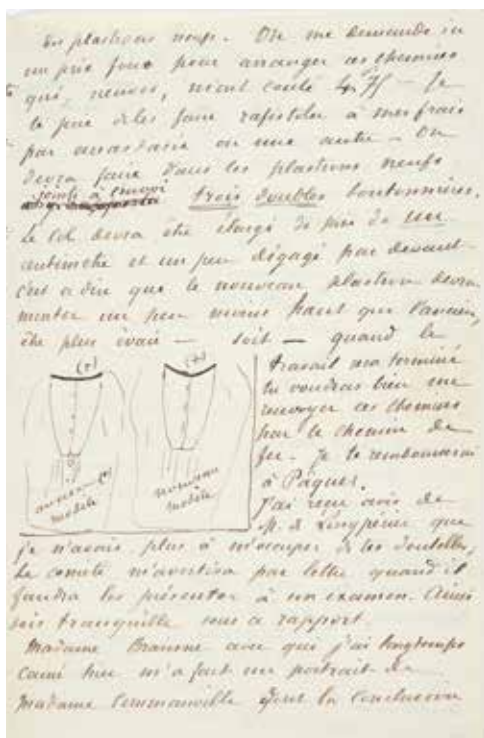 des plastrons neufs. On me demande ici
un prix fou pour arranger ces chemises
qui, neuves, m'ont coûté 4f,75 – Je
te prie de les faire rafistoler à mes frais
par Anastasie ou une autre – On
devra faire dans les plastrons neufs
joints à l'envoi trois doubles boutonnières.
Le col devra être élargi de près de un
centimètre et un peu dégagé par devant
c'est à dire que le nouveau plastron devra
monter un peu moins haut que l'ancien,
être plus évasé – soit – quand le
travail sera terminé
tu voudras bien me
renvoyer ces chemises
par le chemin de
fer. Je te rembourserai
à Pâques.
(+)
(+)
ancien (+)
modèle
nouveau
modèle
J'ai reçu avis de
M. de que
je n'avais plus à m'occuper de tes dentelles,
Le comité m'avertira par lettre quand il
faudra les présenter à un examen. Ainsi
sois tranquille sous ce rapport.
Madame Brainne avec qui j'ai longtemps
causé hier m'a fait un portrait de
Madame Commanville dont la conclusion